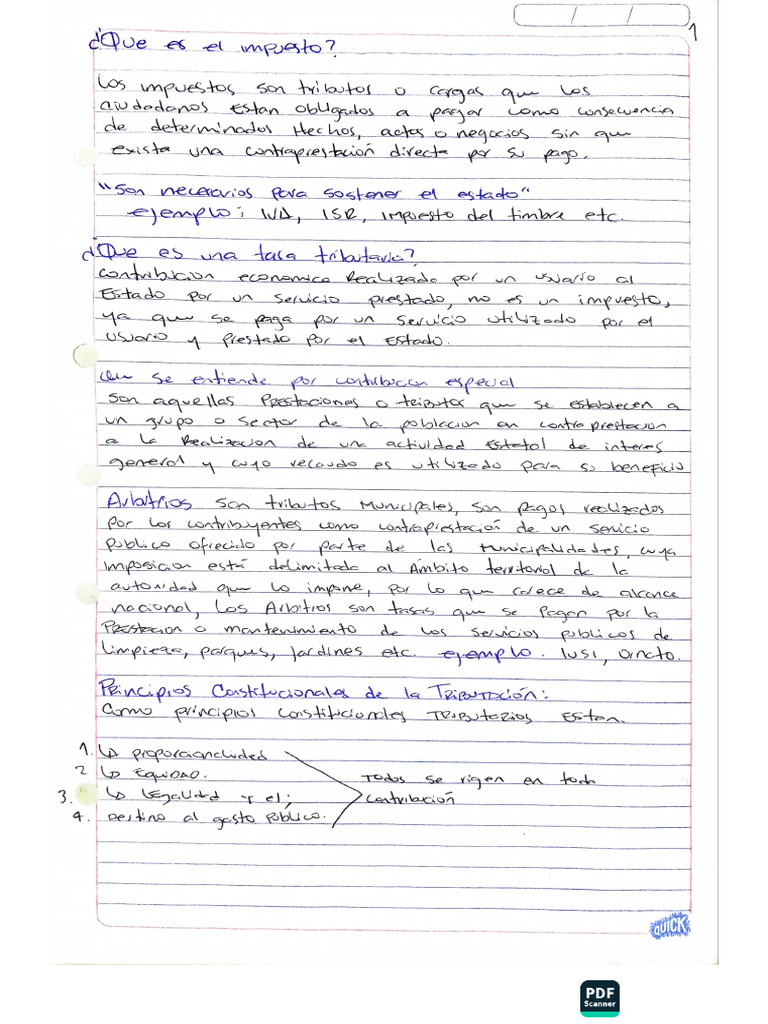 1
¿Que es el impuesto?
Los impuestos son tributos o cargas que los
ciudadanos Estan obligados a pagar como consecuencia
de determinados Hechos, actos o negocios sin que
exista una contraprestación directa por su pago.
"Son necesarios para sostener el estado"
ejemplo: IVA, ISR, Impuesto del timbre etc.
¿Que es una tasa tributaria?
Contribucion economica Realizado por un usuario al
Estado por un servicio prestado, no es un impuesto,
ya que se paga por un servicio utilizado por el
usuario y Prestado por el Estado.
Que se entiende por contribucion especial
Son aquellas Prestaciones o tributos que se establecen a
un grupo o sector de la poblacion en contraprestacion
a la Realizacion de una actividad Estatal de interes
general y cuyo recaudo es utilizado para su beneficio
Arbitrios son tributos Municipales, son pagos realizados
por los contribuyentes como contraprestación de un servicio
Publico ofrecido por parte de las Municipalidades, cuya
imposicion está delimitada al Ámbito territorial de la
autoridad que lo impone, por lo que carece de alcance
nacional, Los Arbitros son tasas que se Pagan por la
Prestacion o mantenimiento de los servicios publicos de
limpieza, parques, Jardines etc. ejemplo. IUSI, Ornato.
Principios Constitucionales de la TRIBUTACIÓN:
Como principios constitucionales TRIBUTERIOS Estan.
1. ↳ proporcionalidad
2 ↳ EQUIDAD.
Todos se rigen en toda
3. ↳ Legalidad y el;
contribución
4. Destino al gasto público.
QUICK
PDF
Scanner